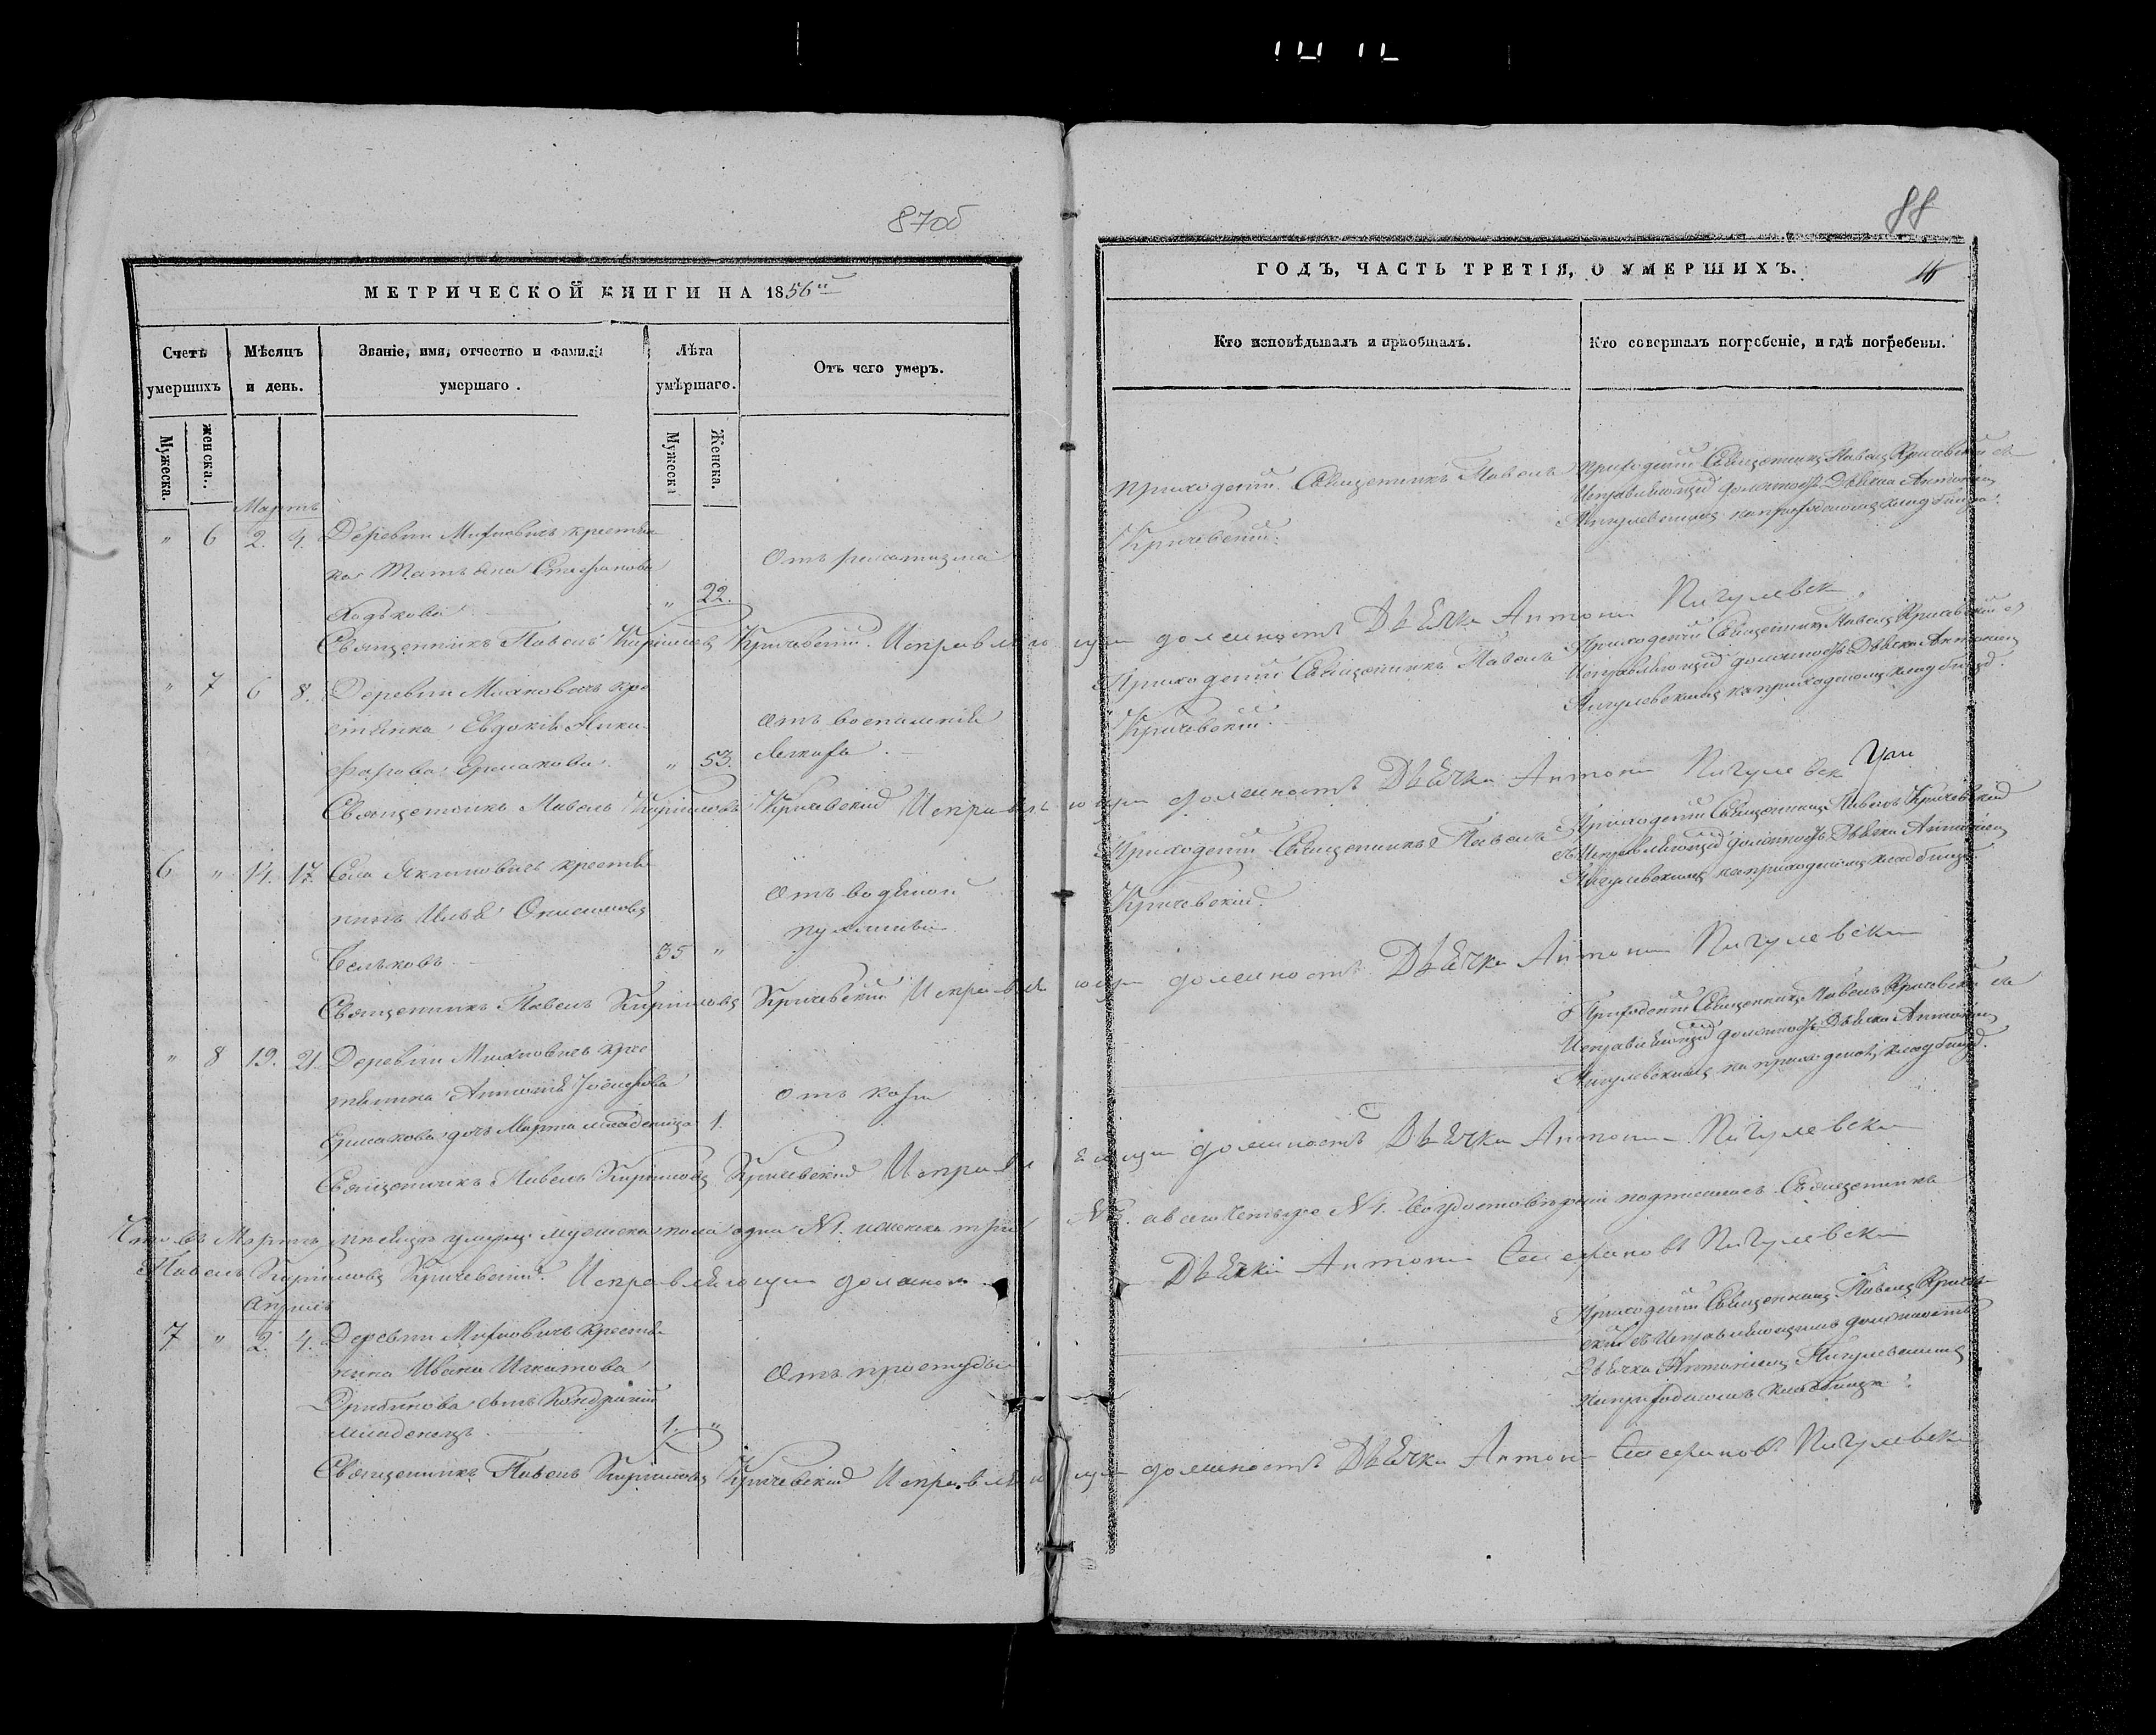 87об
МЕТРИЧЕСКОЙ КНИГИ НА 1856й
Счетъ умершихъ
Мѣсяцъ и день.
Званіе, имя, отчество и фамилія умершаго.
Лѣта умѣршаго.
Отъ чего умеръ.
Мужеска.
женска.
Мужеска
Женска.
Мартъ
" 6 2. 4. Деревни крестьян-
ка Татьяна Стефанова
Ходькова " 22.
Отъ ревматизма
Священникъ Павелъ Кириловъ Кричевскій. Исправляющій должность Дьячка Антоній Пигулевскій
" 7 6 8. Деревни Махновичь кре-
стьянка Евдокія Ники-
фарова Ермакова. " 53.
Отъ воспаленія
Священникъ Павелъ Кириловъ Кричевскій Исправляющій должность Дьячка Антоній Пигулевскій
6 " 14. 17. Села Яклиновичь крестья-
нинъ Илья Онисимовъ
35 "
Отъ водяной
Священникъ Павелъ Кириловъ Кричевскій Исправляющій должность Дьячка Антоній Пигулевскій
" 8 19. 21. Деревни Махновичь крес-
тьянина Антонія
Ермакова дочь Марта младеница 1.
Отъ кори
Священникъ Павелъ Кириловъ Кричевскій Исправляющій должность Дьячка Антоній Пигулевскій
Что въ Мартѣ мѣсяцѣ умерло мужеска пола одна №1. женска три №3. а всего четыре №4. Въ удостовѣреніи подписались Священникъ
Павелъ Кириловъ Кричевскій. Исправляющій должность Дьячка Антоній Стефановъ Пигулевскій
Апрѣль
7 " 2. 4. Деревни крестья-
нина Ивана Игнатова
сынъ Кондратій
младенецъ. 1. "
Отъ простуды
Священникъ Павелъ Кириловъ Кричевскій Исправляющій должность Дьячка Антоній Стефановъ Пигулевскій
88
ГОДЪ, ЧАСТЬ ТРЕТІЯ, О УМЕРШИХЪ.
Кто исповѣдывалъ и пріобщалъ.
Кто совершалъ погребеніе, и гдѣ погребены.
Приходскій Священникъ Павелъ
Кричевскій.
Приходскій Священникъ Павелъ Кричевскій съ
Исправляющимъ должность Дьячка Антоніемъ
Пигулевскимъ на приходскомъ кладбищѣ.
Приходскій Священникъ Павелъ
Кричевскій.
Приходскій Священникъ Павелъ Кричевскій съ
Исправляющимъ должность Дьячка Антоніемъ
Пигулевскимъ на приходскомъ кладбищѣ.
Приходскій Священникъ Павелъ
Кричевскій.
Приходскій Священникъ Павелъ Кричевскій
съ Исправляющимъ должность Дьячка Антоніемъ
Пигулевскимъ на приходскомъ кладбищѣ.
Приходскій Священникъ Павелъ Кричевскій съ
Исправляющимъ должность Дьячка Антоніемъ
Пигулевскимъ на приходскомъ кладбищѣ.
Приходскій Священникъ Павелъ Кричев-
скій съ Исправляющимъ должность
Дьячка Антоніемъ Пигулевскимъ
на приходскомъ кладбищѣ.